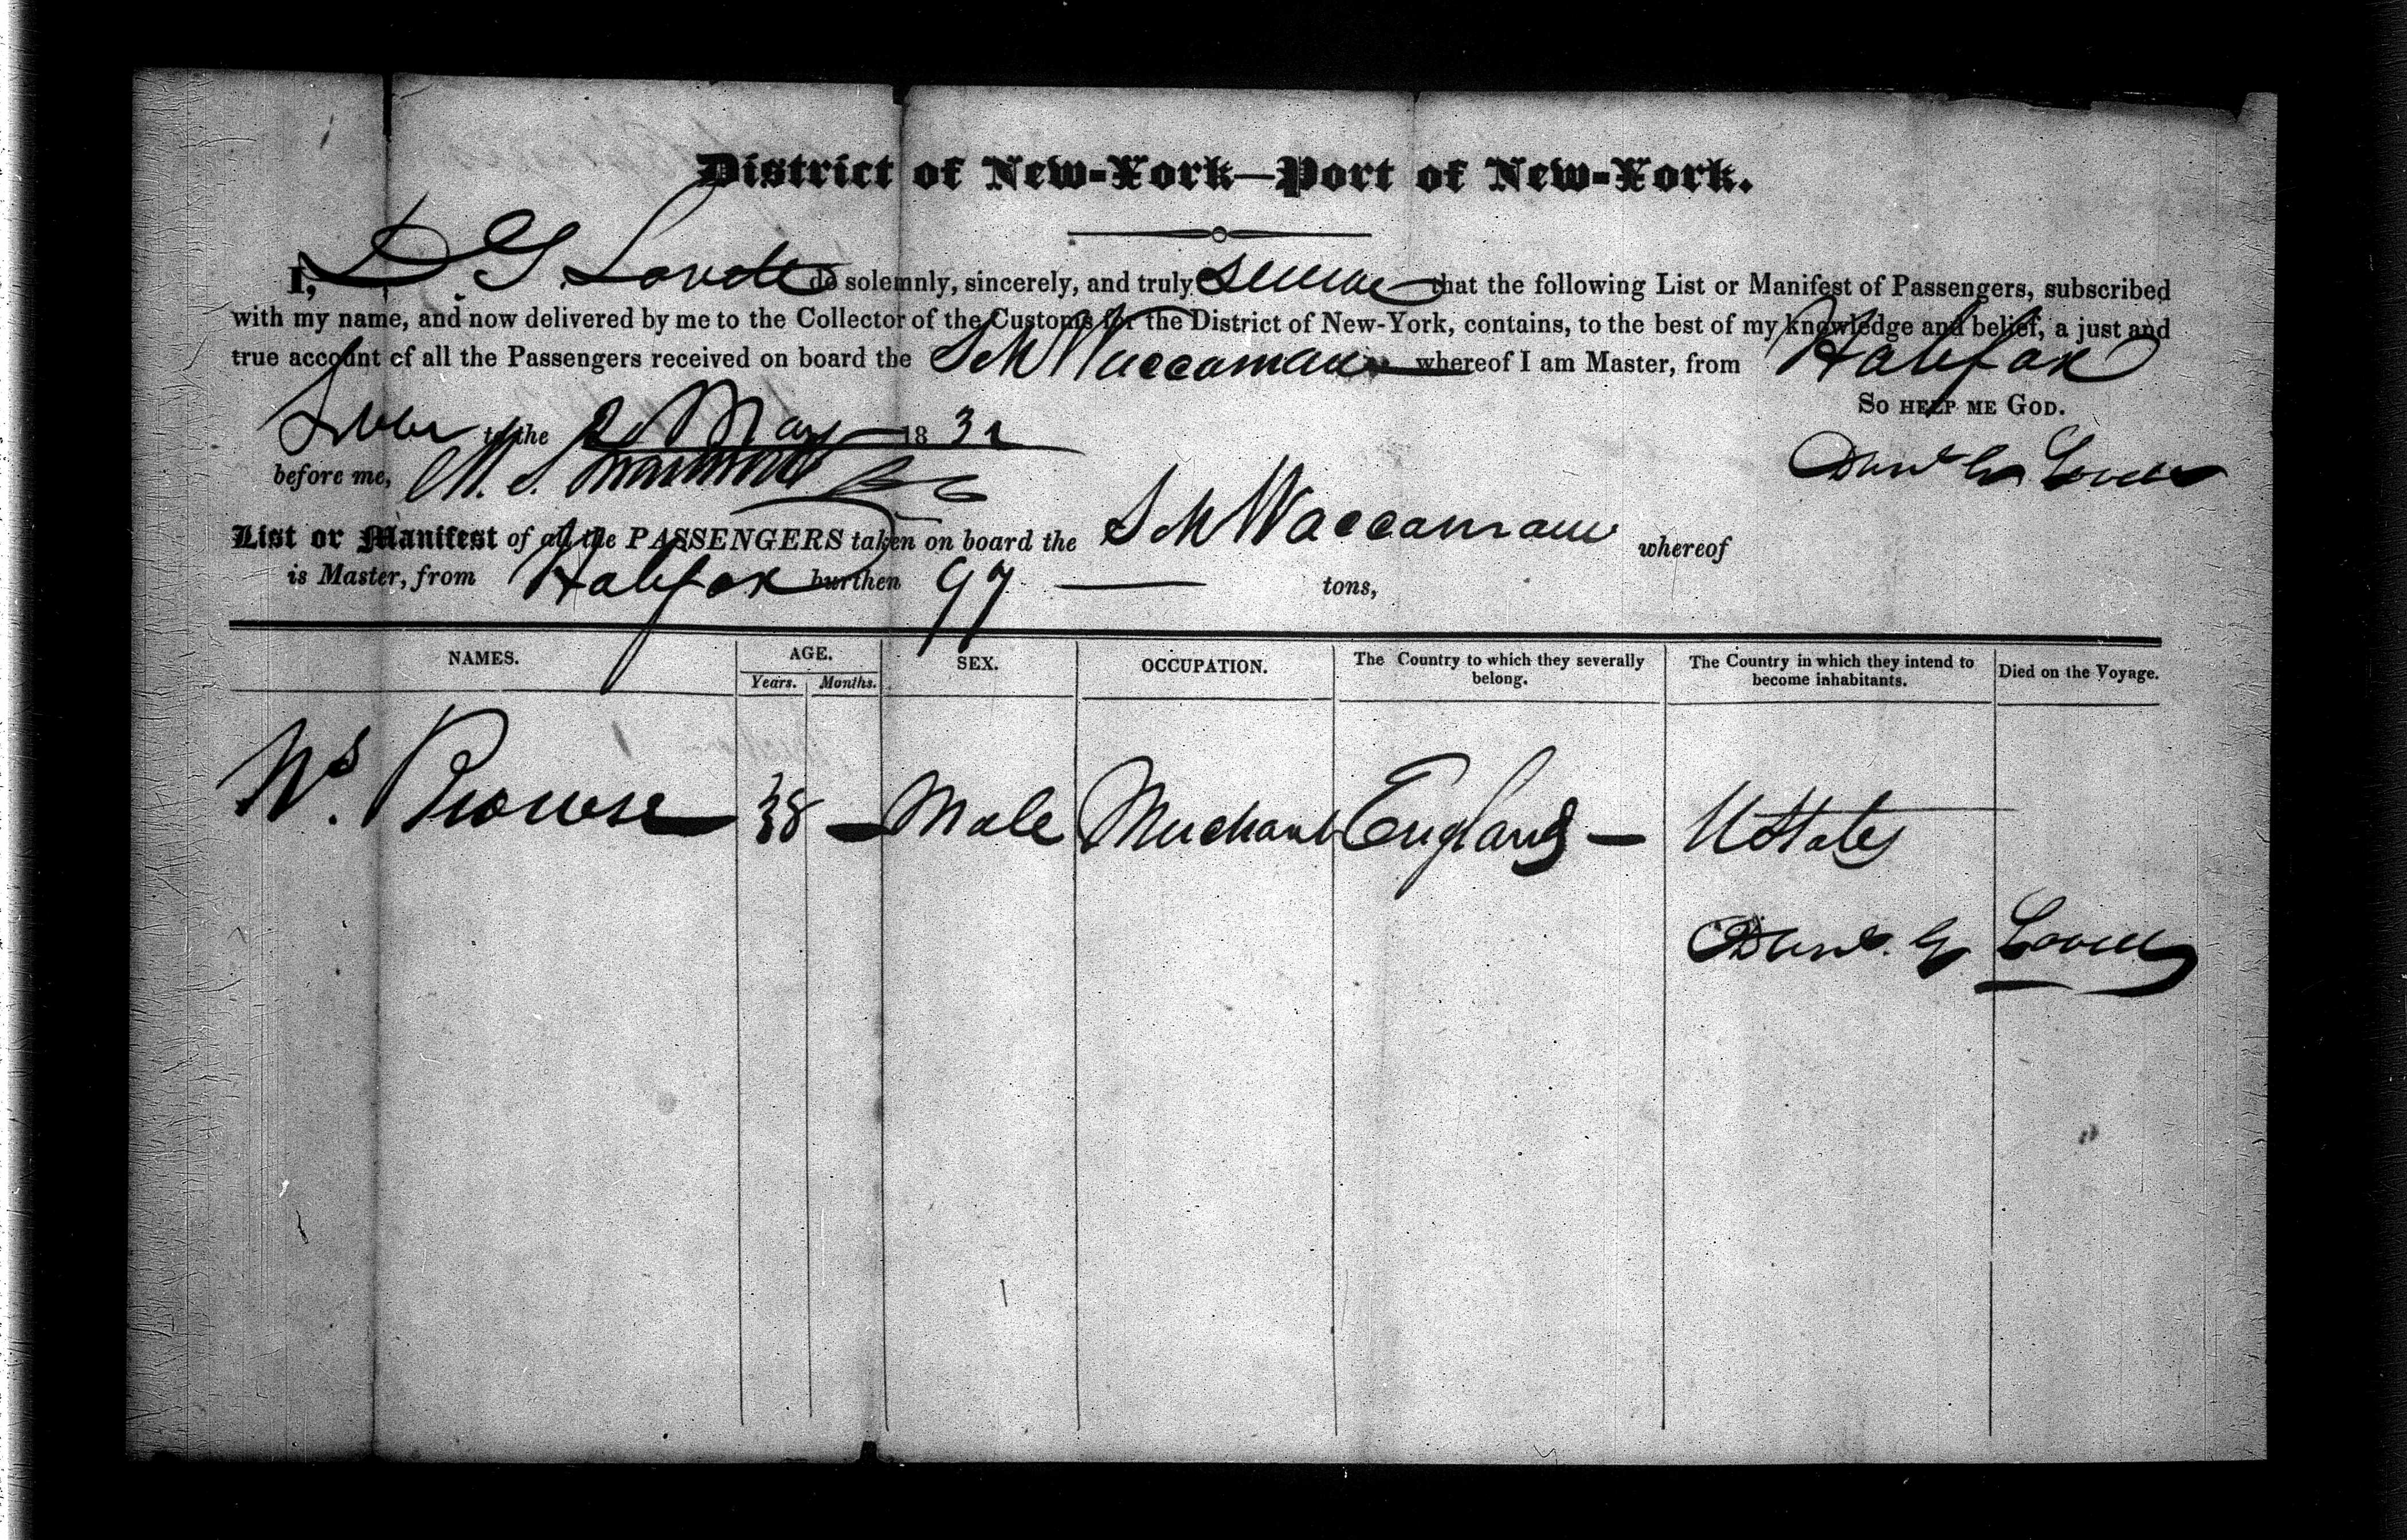 District of New-York—Port of New-York.
I, D G Lovell do solemnly, sincerely, and truly swear that the following List or Manifest of Passengers, subscribed
with my name, and now delivered by me to the Collector of the Customs for the District of New-York, contains, to the best of my knowledge and belief, a just and
true account of all the Passengers received on board the Sch Waccamaw whereof I am Master, from Halifax
So HELP ME GOD.
to the 2 May 1832
Danl G Lovell
before me,
List or Manifest of all the PASSENGERS taken on board the Sch Waccamaw whereof
is Master, from Halifax burthen 97 tons,
NAMES. AGE. SEX. OCCUPATION. The Country to which they severally belong. The Country in which they intend to become inhabitants. Died on the Voyage.
Years. Months.
Prowse 38 — Male Merchant England — U States
Danl. G Lovell